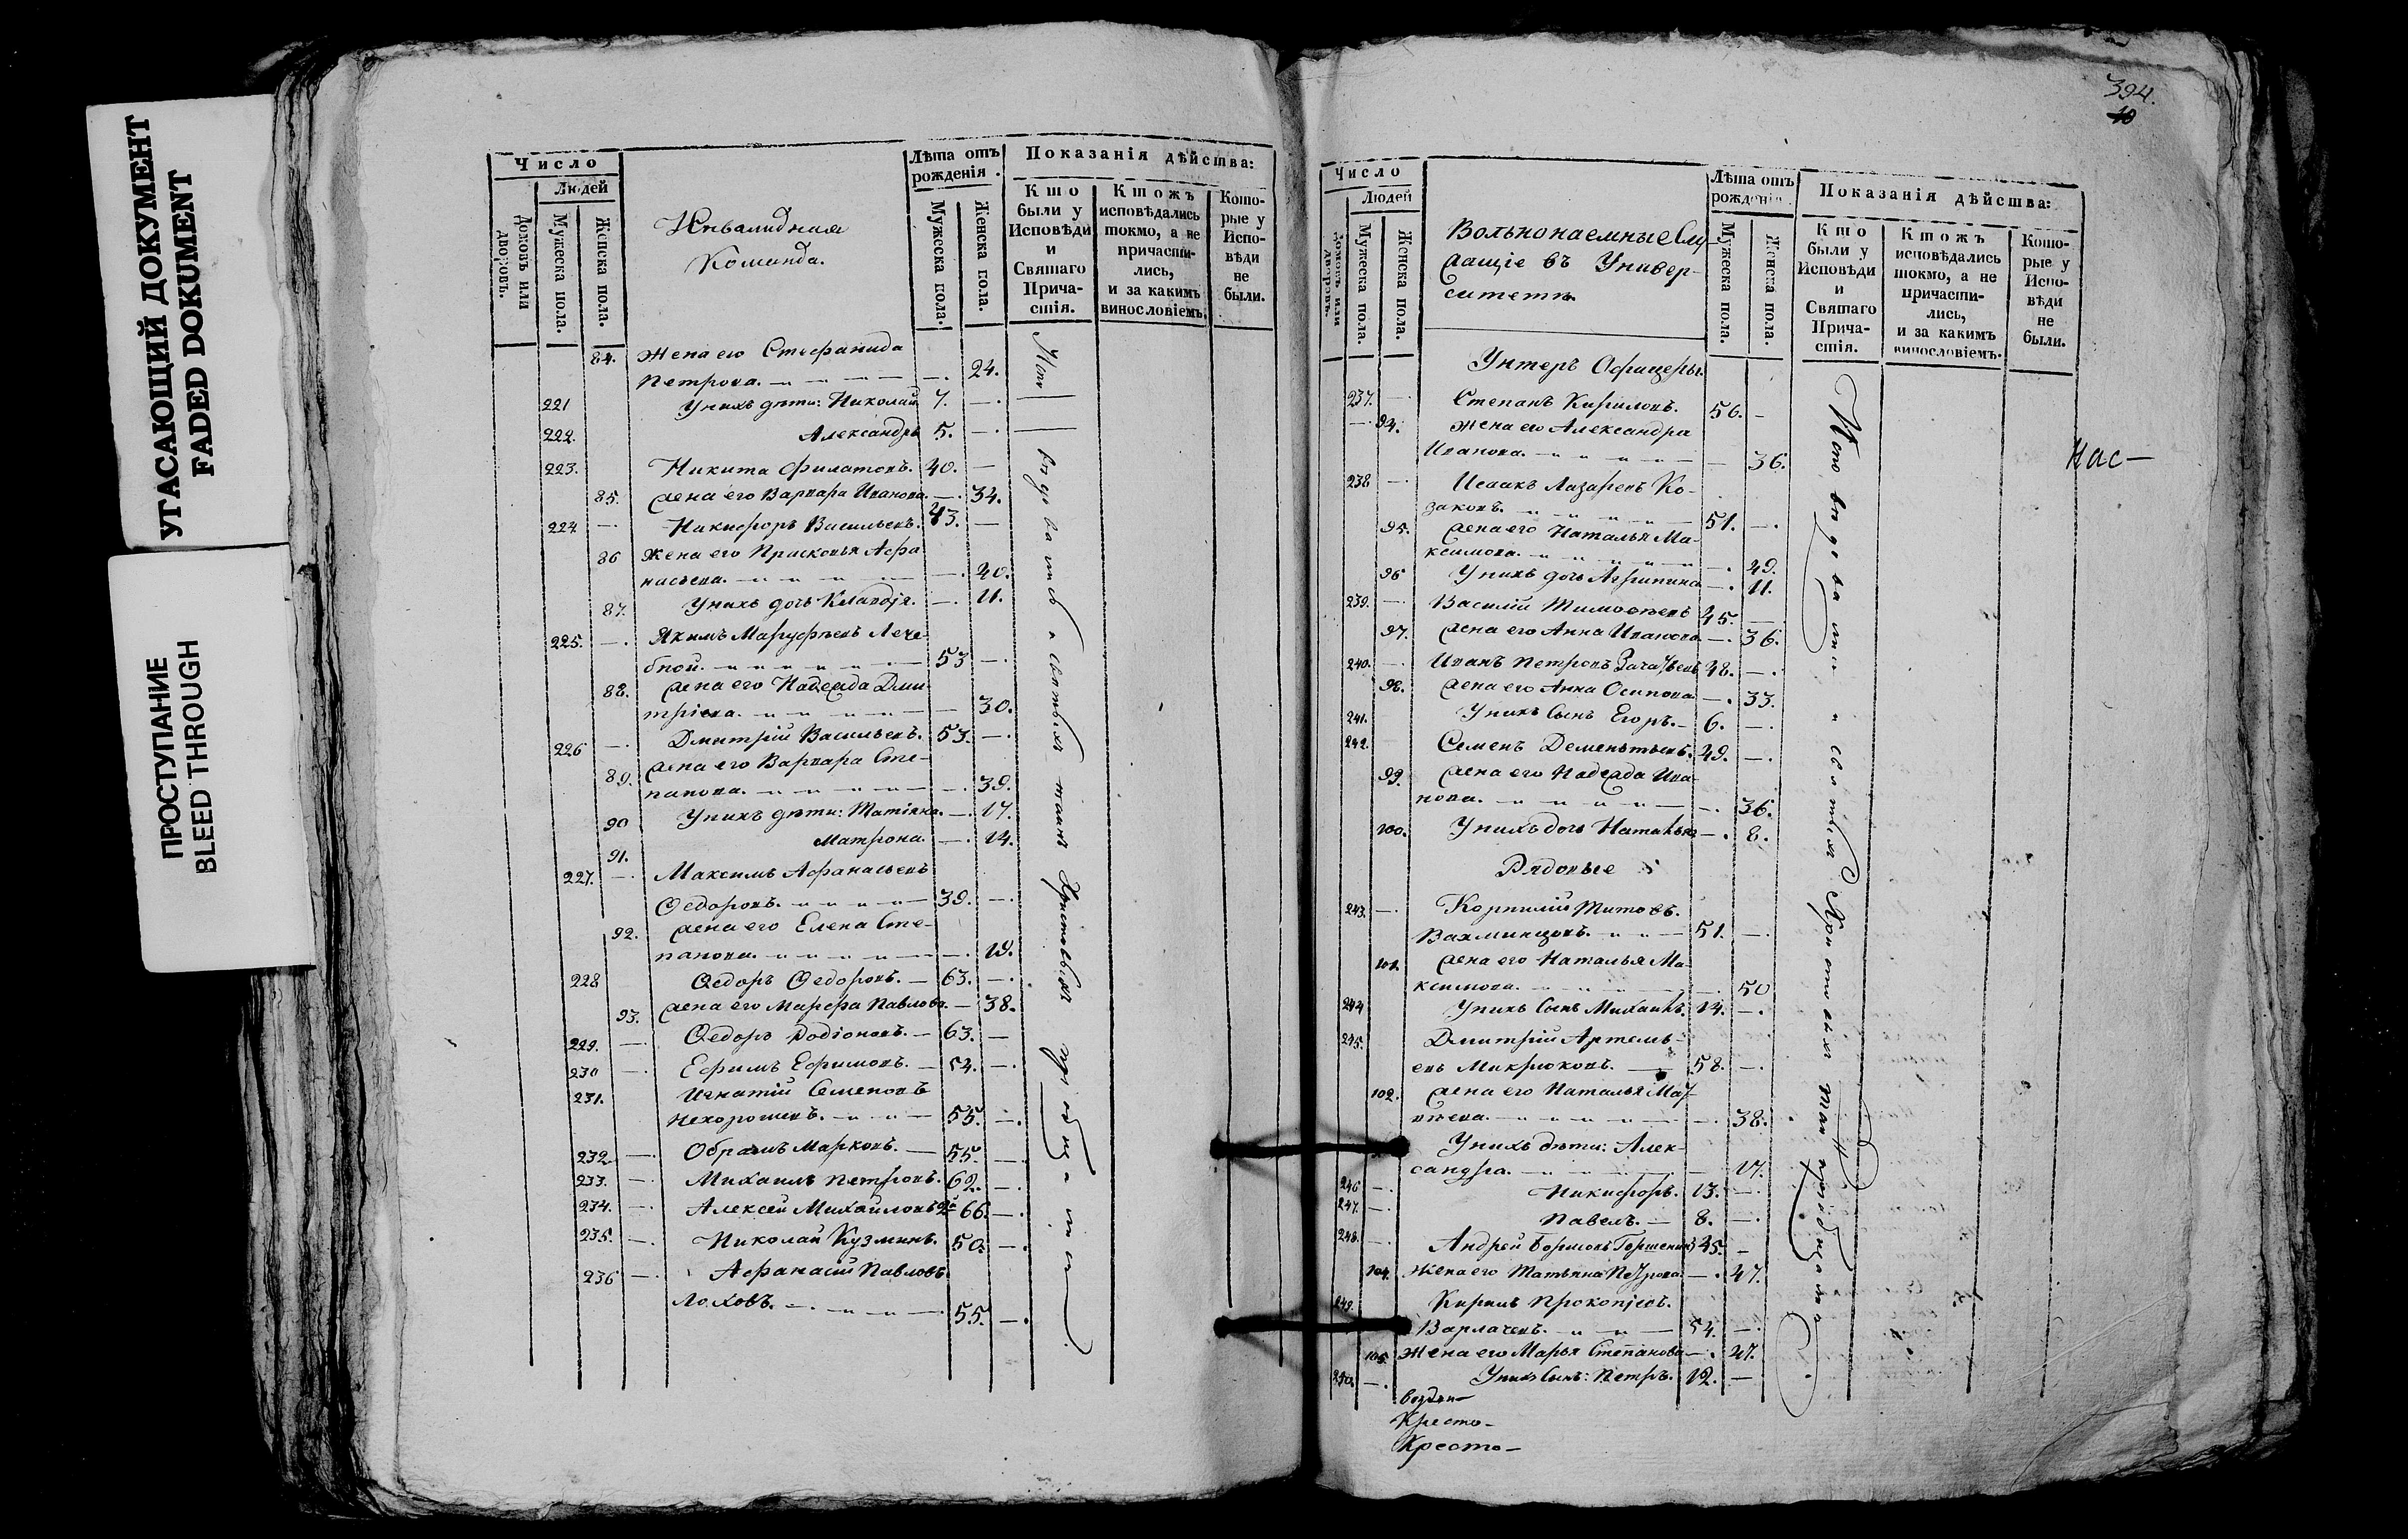 УГАСАЮЩИЙ ДОКУМЕНТ
FADED DOKUMENT
ПРОСТУПАНИЕ
BLEED THROUGH
Число
Людей
Домовъ или дворовъ.
Мужеска пола.
Женска пола.
Инвалидная
Команда.
Лѣта отъ рожденія.
Мужеска пола.
Женска пола.
Показанія дѣйства:
Кто были у Исповѣди и Святаго Прича-стія.
Ктожъ исповѣдались токмо, а не причасти-лись, и за какимъ винословіемъ.
Кото-рые у Испо-вѣди не были.
84. Жена его Стефанида
Петрова. — 24.
221 У нихъ дѣти: Николай 7. —.
222. Александръ 5. —.
223. Никита Филатовъ. 40. —
85. жена его Варвара Иванова. —. 34.
224 —. Никифоръ Васильевъ. 43. —
86 Жена его Прасковья Афа
насьева. —. 40.
87. У нихъ дочь Клавдія. —. 11.
225. —. Якимъ Маруфѣевъ Лече
бной. 53 —.
88. жена его Надежда Дми
тріева. — 30.
226 —. Дмитрій Васильевъ. 53. —.
89. жена его Варвара Сте-
панова. —. 39.
90 У нихъ дѣти: Татіяна. —. 17.
91. Матрона. —. 14.
227. —. Максимъ Афанасьевъ
Ѳедоровъ. 39. —.
92. жена его Елена Сте-
панова. —. 19.
228 Ѳедоръ Ѳедоровъ. — 63. —.
93. жена его Марфа Павлова. — 38.
229. —. Ѳедоръ Родіоновъ. — 63. —
230 —. Ефимъ Ефимовъ. — 54. —.
231. Игнатій Семеновъ
Нехорошевъ. 55. —.
232. —. Обрамъ Марковъ. — 55. —.
233. —. Михаилъ Петровъ. 62. —.
234. —. Алексей Михайловъ 2й 66. —.
235. —. Николай Кузминъ. 50. —.
236 —. Афанасій Павловъ
Лоховъ. 55. —.
Исповѣдывались и святыхъ таинъ Христовыхъ пріобщались
394.
10
Число
Людей
Домовъ или дворовъ.
Мужеска пола.
Женска пола.
Вольнонаемные Слу
жащіе въ Универ-
ситетѣ.
Лѣта отъ рожденія.
Мужеска пола.
Женска пола.
Показанія дѣйства:
Кто были у Исповѣди и Святаго Прича-стія.
Ктожъ исповѣдались токмо, а не причасти-лись, и за какимъ винословіемъ.
Кото-рые у Испо-вѣди не были.
Унтеръ Офицеры.
237. Степанъ Кириловъ. 56. —
94. Жена его Александра
Иванова. — 36.
238 —. Исаакъ Лазаревъ Ко-
заковъ. 51. —.
95. жена его Наталья Ма-
ксимова. —. 49.
96 У нихъ дочь Агрипина —. 11.
239. —. Василій Тимофѣевъ 45. —
97. жена его Анна Иванова —. 36.
240. —. Иванъ Петровъ 48. —.
98. жена его Анна Осипова —. 33.
241. У нихъ Сынъ Егоръ. — 6. —.
242. Семенъ Дементьевъ. 49. —.
99. жена его Надежда Ива-
нова. —. 36.
100. У нихъ дочь Наталья —. 8.
Рядовые
243. —. Корнилій Титовъ.
Вахминцовъ. 51. —.
101. жена его Наталья Ма-
ксимова. —. 50
244 У нихъ Сынъ Михаилъ. 14. —.
245. Дмитрій Артемь-
евъ Микрюковъ. — 58. —.
102. жена его Наталья Мат
вѣева. —. 38.
У нихъ дѣти: Алек-
сандра. — 17.
246 —. Никифоръ. 13. —.
247. —. Павелъ. — 8. —.
248. —. Андрей Борисовъ 45. —
104. Жена его Татьяна Петрова —. 47.
249. Кирилъ Прокопјевъ.
Варлачевъ. 54. —.
105. Жена его Марья Степанова —. 47.
250. —. У нихъ Сынъ: Петръ. 12. —
Исповѣдывались и святыхъ Христовыхъ таинъ пріобщались
нас—
Кресто-
Кресто-